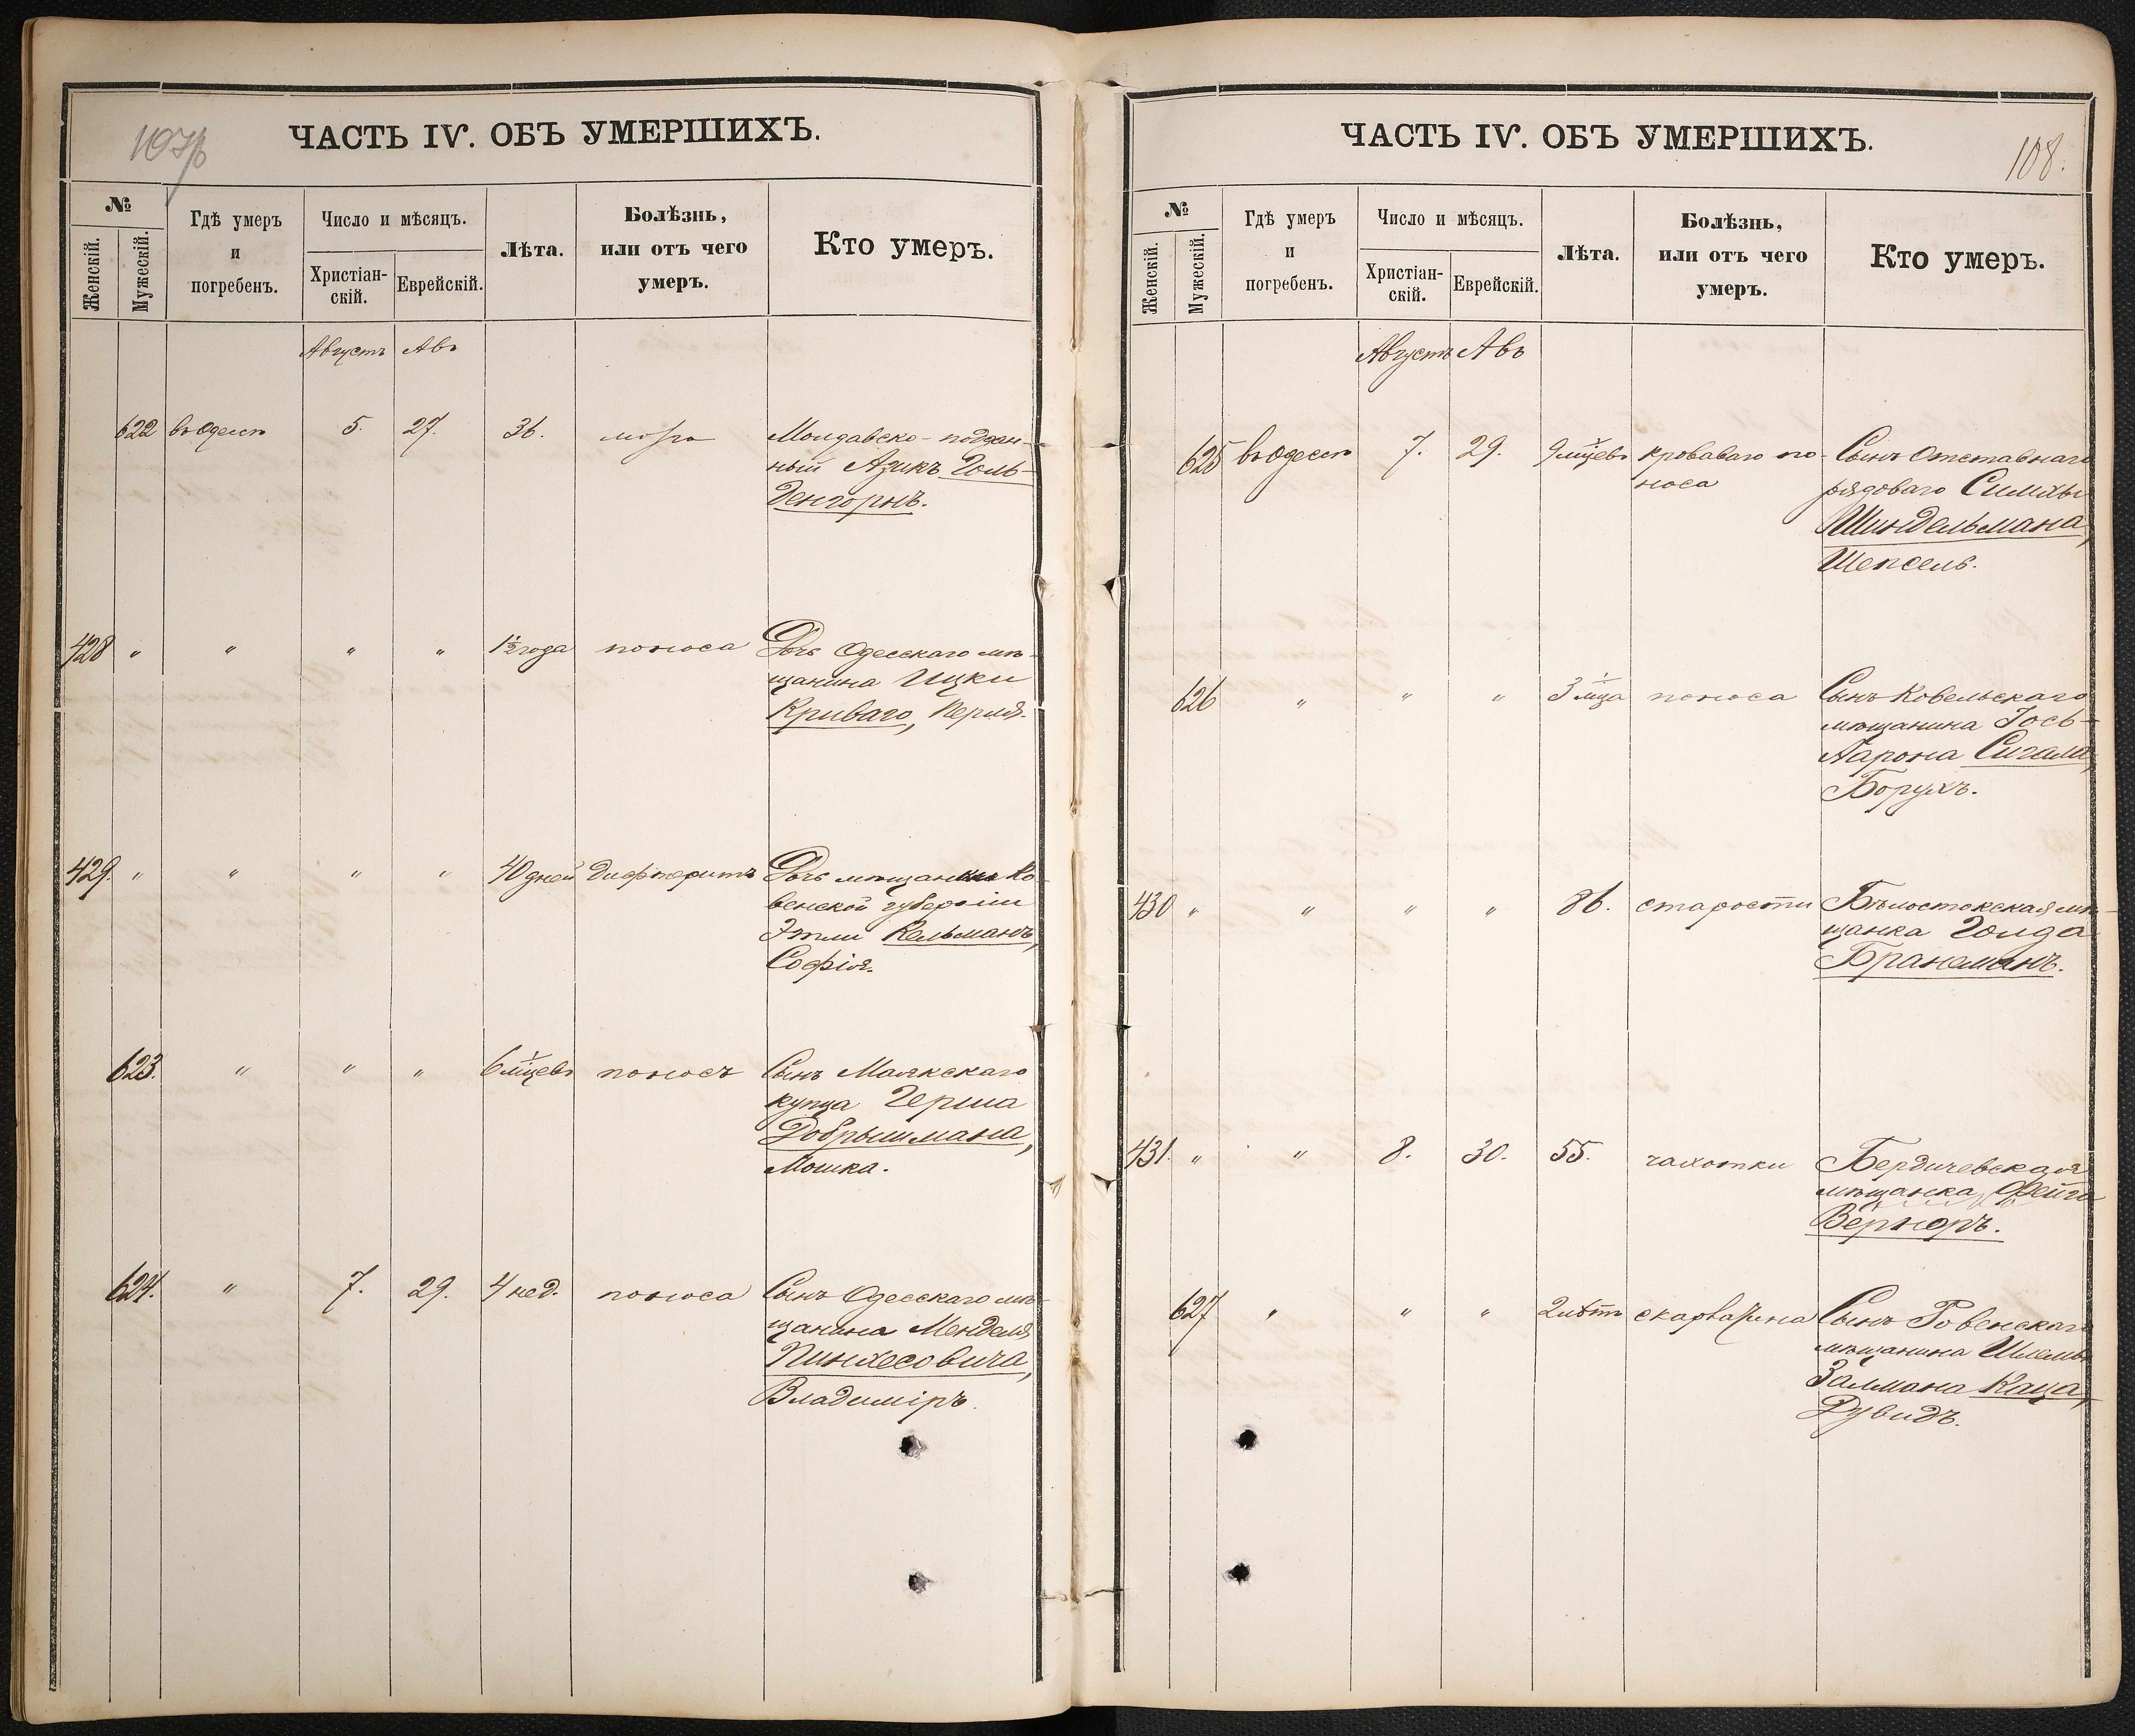 ЧАСТЬ IV. ОБЪ УМЕРШИХЪ.
№
Женскій.
Мужескій.
Гдѣ умеръ
и
погребенъ.
Число и мѣсяцъ.
Христіан-
скій.
Еврейскій.
Лѣта.
Болѣзнь,
или отъ чего
умеръ.
Кто умеръ.
Августъ Авъ
622 въ Одессѣ 5. 27. 36. Молдавско-поддан-
ный Азикъ Голь-
денгорнъ.
428 " " " " 1½ года поноса Дочь Одесскаго мѣ-
щанина Ицки
Криваго, Перля.
429. " " " " 40 дней дифтеритъ Дочь мѣщанки Ко-
венской губерніи
Этли Кельманъ,
Софія.
623. " " " 6 мцевъ поносъ Сынъ Маякскаго
купца Герша
Добрышмана,
Мошка.
624. " 7. 29. 4 нед. поноса Сынъ Одесскаго мѣ-
щанина Менделя
Пинхесовича,
Владиміръ.
ЧАСТЬ IV. ОБЪ УМЕРШИХЪ.
108.
№
Женскій.
Мужескій.
Гдѣ умеръ
и
погребенъ.
Число и мѣсяцъ.
Христіан-
скій.
Еврейскій.
Лѣта.
Болѣзнь,
или отъ чего
умеръ.
Кто умеръ.
Августъ Авъ
625 въ Одессѣ 7. 29. 9 мцевъ кроваваго по- Сынъ Отставнаго
носа рядоваго Симхи
Шиндельмана,
Шепсель.
626 " " " 3 мца поноса Сынъ Ковельскаго
мѣщанина Іось-
Аарона Сигала,
Борухъ.
430 " " " " 86. старости Бѣлостокская мѣ-
щанка Голда
Бранеманъ.
431. " " 8. 30. 55. чахотки Бердичевская
мѣщанка Фейга
Вернеръ.
627 " " " 2 лѣтъ скарлатина Сынъ Ровенскаго
мѣщанина Шлемы
Залмана Каца,
Дувидъ.